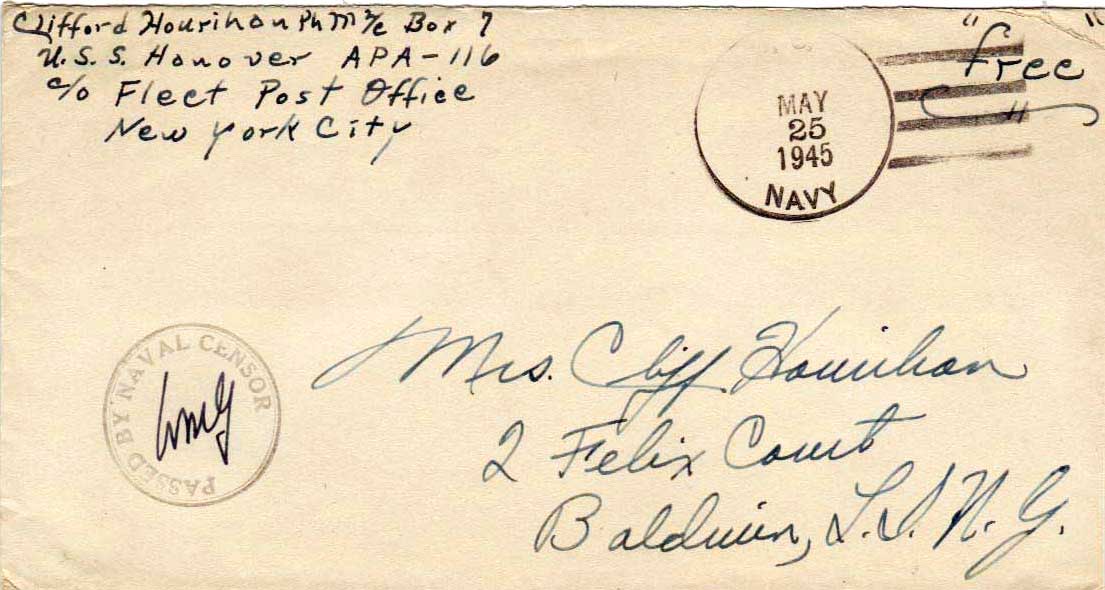 Clifford Hourihan PhM 2/c Box 7
U.S.S. Hanover APA-116
c/o Fleet Post Office
New York City
"free"
MAY
25
1945
NAVY
PASSED BY NAVAL CENSOR
Mrs. Cliff Hourihan
2 Felix Court
Baldwin, L.I. N.Y.